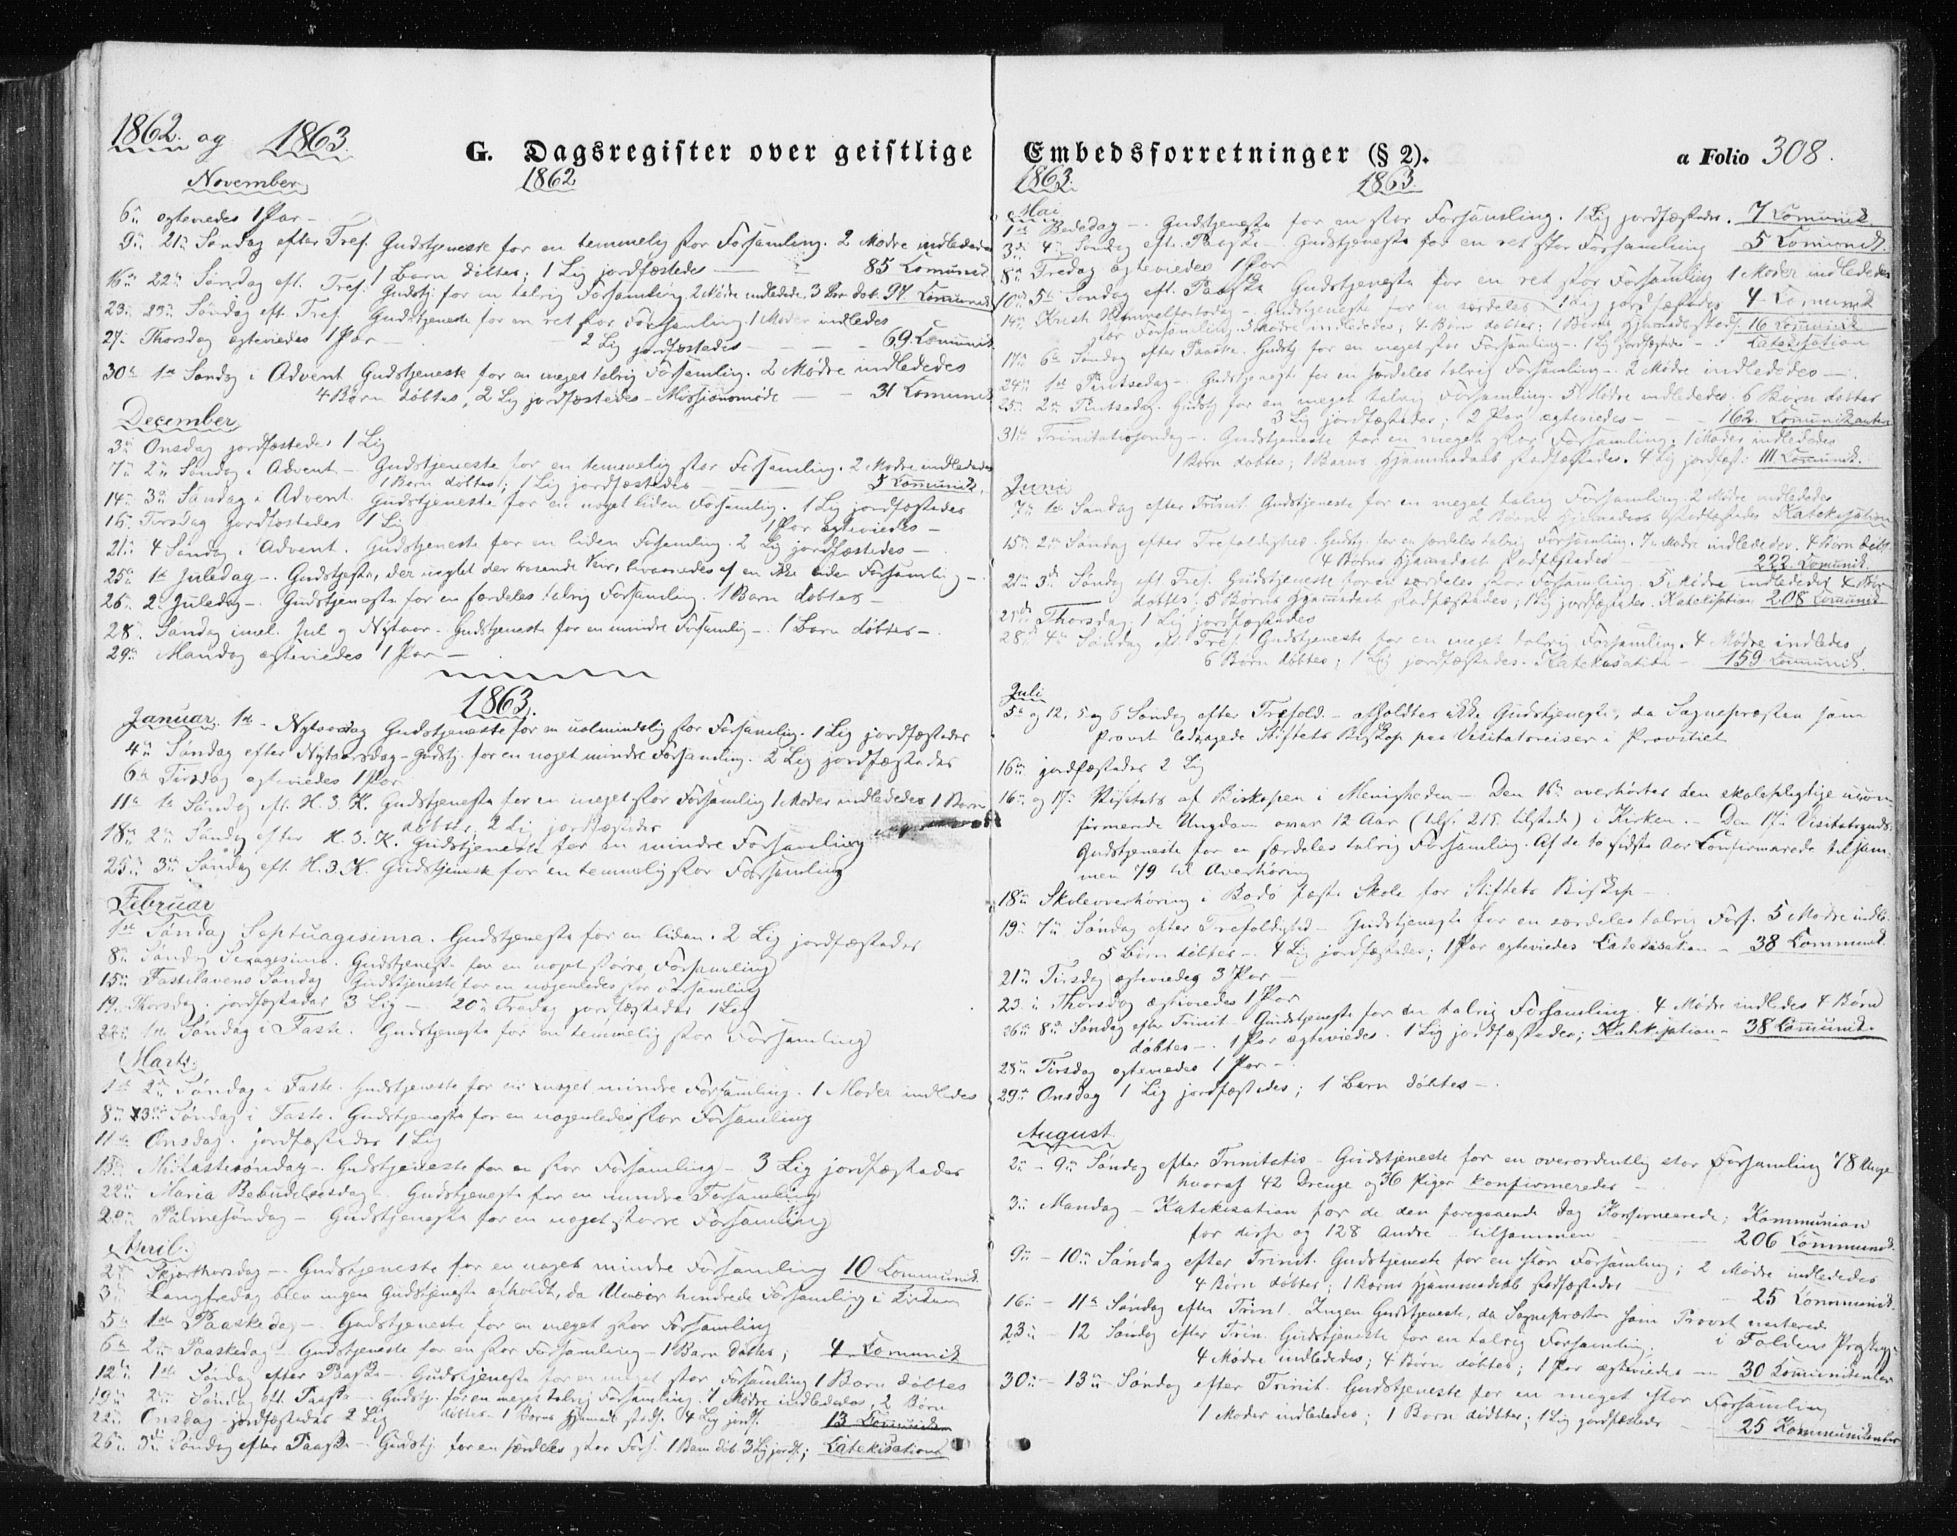 1862 og 1863.
G. Dagsregister over geistlige
1862
November
6te ægteviedes 1 Par –
9de 21de Søndag efter Tref. Gudstjeneste for en temmelig stor Forsamling. 2 Mødre indledede
1 Barn døbtes; 1 Lig jordfæstedes – – 85 Komunik.
16de 22de Søndag eft. Tref. Gudstj. for en talrig Forsamling. 2 Mødre indledede, 3 Børn døb. 94 Komunik.
23de 23de Søndag eft. Tref. Gudstjeneste for en ret stor Forsamling. 1 Moder indledes
2 Lig jordfæstedes – – – 69 Komunik.
27de Thorsdag ægteviedes 1 Par –
30te 1ste Søndag i Advent Gudstjeneste for en meget talrig Forsamling. 2 Mødre indledes
4 Børn døbtes, 2 Lig jordfæstedes – Missionsmøde – – 31 Komunik.
December
3de Onsdag jordfæstedes 1 Lig
7de 2den Søndag i Advent – Gudstjeneste for en temmelig stor Forsamling. 2 Mødre indlededes
1 Barn døbtes; 1 Lig jordfæstedes – 5 Komunik.
14de 3de Søndag i Advent. Gudstjeneste for en noget liden Forsamlig. 1 Lig jordfæstedes
16de Tirsdag jordfæstedes 1 Lig 1 Par ægteviedes –
21de 4 Søndag i Advent. Gudstjeneste for en liden Forsamling. 2 Lig jordfæstedes –
25de 1ste Juledag –. Gudstjeneste, der uagtet der rasende Veir, bivaanedes af en ikke liden Forsamling –
26de 2. Juledag –. Gudstjeneste for en særdeles talrig Forsamling. 1 Barn døbtes –
28de Søndag imel. Jul og Nytaar. Gudstjeneste for en mindre Forsamlig –. 1 Barn døbtes –.
29de Mandag ægteviedes 1 Par –
1863.
Januar. 1ste – Nytaarsdag Gudstjeneste for en ualmindelig stor Forsamling. 1 Lig jordfæstedes
4de Søndag efter Nytaarsdag – Gudstj. for en noget mindre Forsamling. 2 Lig jordfæstedes
6te Tirsdag ægteviedes 1 Par
11te 1ste Søndag eft. H. 3. K. Gudstjeneste for en meget stor Forsamlig 1 Moder indlededes 1 Barn
døbtes, 2 Lig jordfæstedes
18de 2den Søndag efter H. 3. K. Gudstjeneste for en mindre Forsamling
25de 3de Søndag eft. H. 3. K. Gudstjeneste for en temmelig stor Forsamling
Februar
1ste Søndag Septuagesima. Gudstjeneste for en liden. 2 Lig jordfæstedes
8de Søndag Sexagesima. Gudstjeneste for en noget større Forsamling
15de Fastelavens Søndag Gudstjeneste for en nogenledes stor Forsamling
19de Thorsdag. jordfæstedes 3 Lig – 20de Fredag jordfæstedes 1 Lig
22de 1ste Søndag i Faste. Gudstjeneste for en temmelig stor Forsamling
Marts
1ste 2den Søndag i Faste. Gudstjeneste for en noget mindre Forsamling. 1 Moder indledes
8de 3de Søndag i Faste. Gudstjeneste for en nogenledes stor Forsamling
11te Onsdag. jordfæstedes 1 Lig
15de Midfastesøndag –. Gudstjeneste for en stor Forsamling – 3 Lig jordfæstedes
22de Maria Bebudelsesdag. Gudstjeneste for en mindre Forsamling
29de Palmesøndag – Gudstjeneste for en noget større Forsamling
April.
2den Skjærthorsdag – Gudstjeneste for en noget mindre Forsamling 10 Kommunik.
3de Langfredag blev ingen Gudstjeneste afholdt, da Uveir hindrede Forsamling i Kirken
5te 1ste Paaskedag –. Gudstjeneste for en meget stor Forsamling
6te 2den Paaskedag – Gudstjeneste for en stor Forsamling – 1 Barn døbtes; 4 Komunik
12te 1ste Søndag efter Paaske –. Gudstjeneste for en meget stor Forsamling 1 Barn døbtes
19de 2den Søndag eft. Paaske – Gudstj. for en meget talrig Forsamling. 7 Mødre indlededes, 2 Børn
døbtes – 1 Barns Hjemmed. stadf. 4 Lig jordf. 13 Komunikan
22de Onsdag – jordfæstedes 2 Lig
26de 3de Søndag efter Paaske – Gudstj. for en særdeles stor Fors. 1 Barn døb. 3 Lig jordf.; Katekisation
Embedsforretninger (§ 2).
a Folio 308.
1863. 1863.
Mai
1ste Bededag –. Gudstjeneste for en stor Forsamling. 1 Lig jordfæstedes. 7 Komunik.
3de 4de Søndag eft. Paaske –. Gudstjeneste for en ret stor Forsamling 5 Komunik.
8de Fredag ægteviedes 1 Par
10de 5te Søndag eft. Paaske Gudstjeneste for en ret stor Forsamling 1 Moder indlededes
1 Lig jordfæstedes 4 Komunik
14de Kristi Himmelfartsdag –. Gudstjeneste for en særdeles
stor Forsamling. 3 Mødre indlededes; 4 Børn døbtes; 1 Barns Hjemmedaab stadf. 16 Komunik
17de 6te Søndag efter Paaske. Gudstj. for en meget stor Forsamling –. 1 Lig jordfæstedes –. Katekisation
24de 1ste Pintsedag –. Gudstjeneste for en særdeles talrig Forsamling – 2 Mødre indlededes –.
25de 2den Pintsedag. Gudstj. for en meget talrig Forsamling. 5 Mødre indlededes. 6 Børn døbtes
3 Lig jordfæstedes; 2 Par ægteviedes – – 162. Komunikanter
31te Trinitatissøndag –. Gudstjeneste for en meget stor Forsamling. 1 Moder indlededes
1 Barn døbtes; 1 Barns Hjemmedaab stadfæstedes. 4 Lig jordfæs. 111 Komunik.
Juni
7de 1ste Søndag efter Trinit. Gudstjeneste for en meget talrig Forsamling. 2 Mødre indlededes
2 Børns Hjemmedaab stadfæstedes Katekisation
15de 2den Søndag efter Trefoldighed. Gudstj. for en særdeles talrig Forsamling. 7 Mødre indlededes. 4 Børn døbt.
4 Børns Hjemmedaab stadfæstedes – 222 Komunik.
21de 3de Søndag eft. Tref. Gudstjeneste for en særdeles stor Forsamling. 5 Mødre indlededes 4 Børn
døbtes; 5 Børns Hjemmedaab stadfæstedes; 1 Lig jordfæstedes. Katekisation 208 Komunik
Thorsdag, 1 Lig jordfæstedes
28de 4de Søndag eft. Tref. Gudstjeneste for en meget talrig Forsamling. 4 Mødre indledes,
6 Børn døbtes; 1 Lig jordfæstedes. Katekisation – 159 Komunik.
Juli
5te og 12, 5 og 6 Søndag efter Trefold. – afholdtes ikke Gudstjeneste, da Sognepræsten som
Provst ledsagede Stiftets Biskop paa Visitatsreiser i Provstiet
16de jordfæstedes 2 Lig
16de og 17de Visitats af Biskopen i Menigheden – Den 16de overhørtes den skolepligtige ukon-
firmerede Ungdom over 12 Aar (tils. 215 tilstede) i Kirken. – Den 17de Visitatsguds-
Gudstjeneste for en særdeles talrig Forsamling. Af de to sidste Aar Confirmerede tilsam-
men 79 til Overhøring
18de Skoleoverhøring i Bodø faste Skole for Stiftets Biskop –
19de 7de Søndag efter Trefoldighed – Gudstjeneste for en særdeles talrig Fors. 5 Mødre indle.
5 Børn døbtes –. 4 Lig jordfæstedes; 1 Par ægteviedes Katekisation – 38 Kommunik.
21de Tirsdag ægteviedes 3 Par –
23de Thorsdag ægteviedes 1 Par
26de 8de Søndag efter Trinit – Gudstjeneste for en talrig Forsamling 4 Mødre indledes 4 Børn
døbtes –. 1 Par ægteviedes. 1 Lig jordfæstedes; Katekisation – 38 Komunik.
28de Tirsdag ægteviedes 1 Par –.
29de Onsdag 1 Lig jordfæstedes; 1 Barn døbtes –.
August
2den – 9de Søndag efter Trinitatis – Gudstjeneste for en overordentlig stor Forsamling 78 Unge
hvoraf 42 Drenge og 36 Piger konfirmeredes –
3de Mandag – Katekisation for de den foregaaende Dag Konfirmerede; Kommunion
for disse og 128 Andre – tilsammen – 206 Kommunik.
9de – 10de Søndag efter Trinit. Gudstjeneste for en stor Forsamling; 2 Mødre indlededes
4 Børn døbtes; 1 Barns Hjemmedaab stadfæstedes 25 Kommunik.
16de – 11te Søndag efter Trinit. Ingen Gudstjeneste, da Sognepræsten som Provst visiterede
i Foldens Præstegj.
23de – 12 Søndag efter Trin. Gudstjeneste for en talrig Forsamling;
4 Mødre indlededes; 4 Børn døbtes; 1 Par ægteviedes – 30 Komunikanter
30te – 13de Søndag efter Trinit. Gudstjeneste for en meget stor Forsamling
1 Moder indlededes; 1 Barn døbtes; 1 Lig jordfæstedes – 25 Kommunikanter